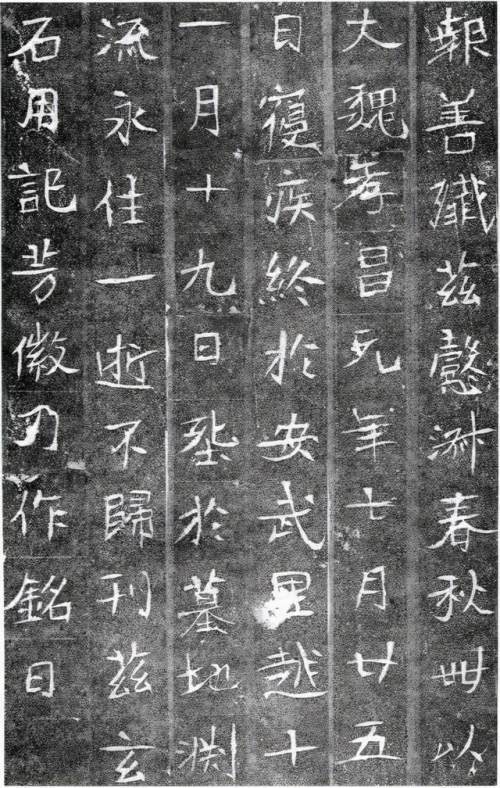 報善殲茲懿淑春秋卌以
大魏孝昌元年七月廿五
日寑疾終於安武里越十
一月十九日塟於墓地渕
流永住一逝不歸刊茲玄
石用記芳徽乃作銘曰